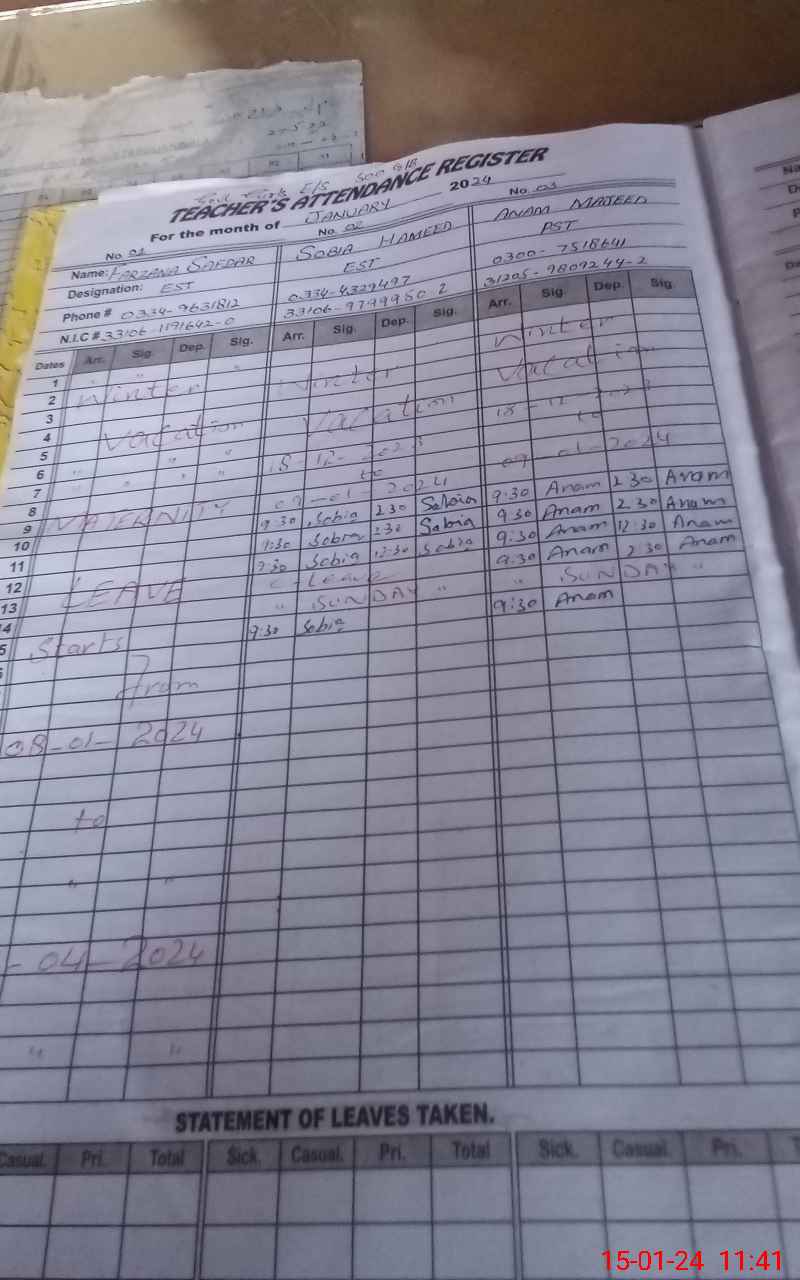 Govt Girls E/S 500 G/B
TEACHER'S ATTENDANCE REGISTER
For the month of JANUARY 2024
No. 01 No. 02 No. 03
Name: FARZANA SAFDAR SOBIA HAMEED ANAM MAJEED
Designation: EST EST PST
Phone # 0334-9631812 0334-4329497 0300-7518641
N.I.C # 33106-1191642-0 33106-9799950-2 31205-9809244-2
Dates Arr. Sig. Dep. Sig. Arr. Sig. Dep. Sig. Arr. Sig. Dep. Sig.
1
2 Winter Winter Winter
3
4 Vacation Vacation Vacation
5
6 " " " 18-12-2023 18-12-2023
7 " " " to to
8 09-01-2024 09-01-2024
9 MATERNITY 9:30 Sobia 2:30 Sobia 9:30 Anam 2:30 Anam
10 9:30 Sobia 2:30 Sobia 9:30 Anam 2:30 Anam
11 9:30 Sobia 12:30 Sobia 9:30 Anam 12:30 Anam
12 LEAVE C-Leave 9:30 Anam 2:30 Anam
13 " SUNDAY " " SUNDAY "
4 9:30 Sobia 9:30 Anam
5 Starts
from
08-01-2024
to
" "
-04-2024
" "
STATEMENT OF LEAVES TAKEN.
Casual. Pri. Total Sick. Casual. Pri. Total Sick. Casual. Pri. T
15-01-24 11:41